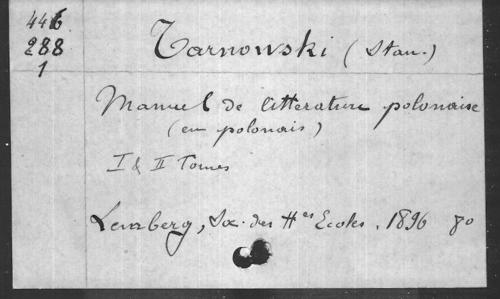 446
288
1
Tarnowski (Stan.)
Manuel de littérature polonaise
(en polonais)
I & II Tomes
Lemberg, Soc. des Htes Ecoles, 1896 8o